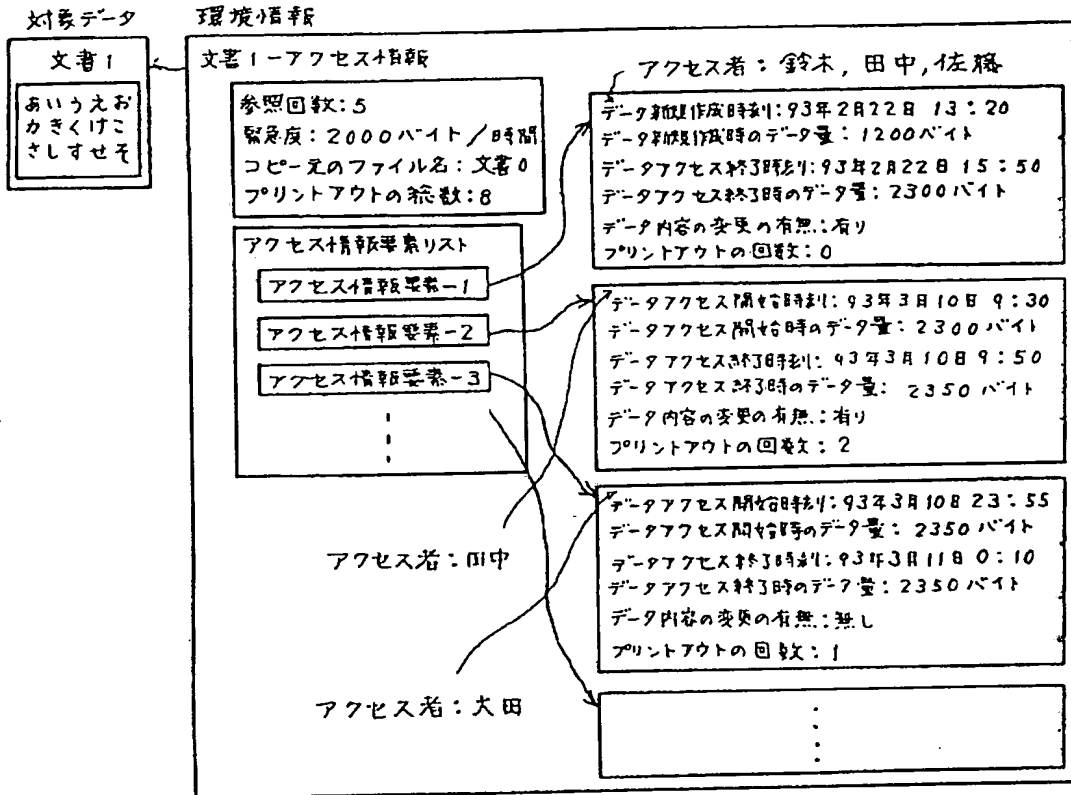 対象データ
環境情報
文書1
あいうえお
かきくけこ
さしすせそ
文書1-アクセス情報
参照回数:5
緊急度:2000バイト/時間
コピー元のファイル名:文書0
プリントアウトの総数:8
アクセス情報要素リスト
アクセス情報要素-1
アクセス情報要素-2
アクセス情報要素-3
アクセス者:鈴木,田中,佐藤
データ新規作成時刻:93年2月22日 13:20
データ新規作成時のデータ量:1200バイト
データアクセス終了時刻:93年2月22日 15:50
データアクセス終了時のデータ量:2300バイト
データ内容の変更の有無:有り
プリントアウトの回数:0
データアクセス開始時刻:93年3月10日 9:30
データアクセス開始時のデータ量:2300バイト
データアクセス終了時刻:93年3月10日 9:50
データアクセス終了時のデータ量:2350バイト
データ内容の変更の有無:有り
プリントアウトの回数:2
アクセス者:田中
データアクセス開始時刻:93年3月10日 23:55
データアクセス開始時のデータ量:2350バイト
データアクセス終了時刻:93年3月11日 0:10
データアクセス終了時のデータ量:2350バイト
データ内容の変更の有無:無し
プリントアウトの回数:1
アクセス者:大田